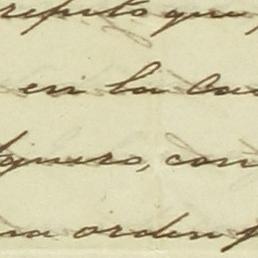 repito que
en la Ca
quero, con
na orden p